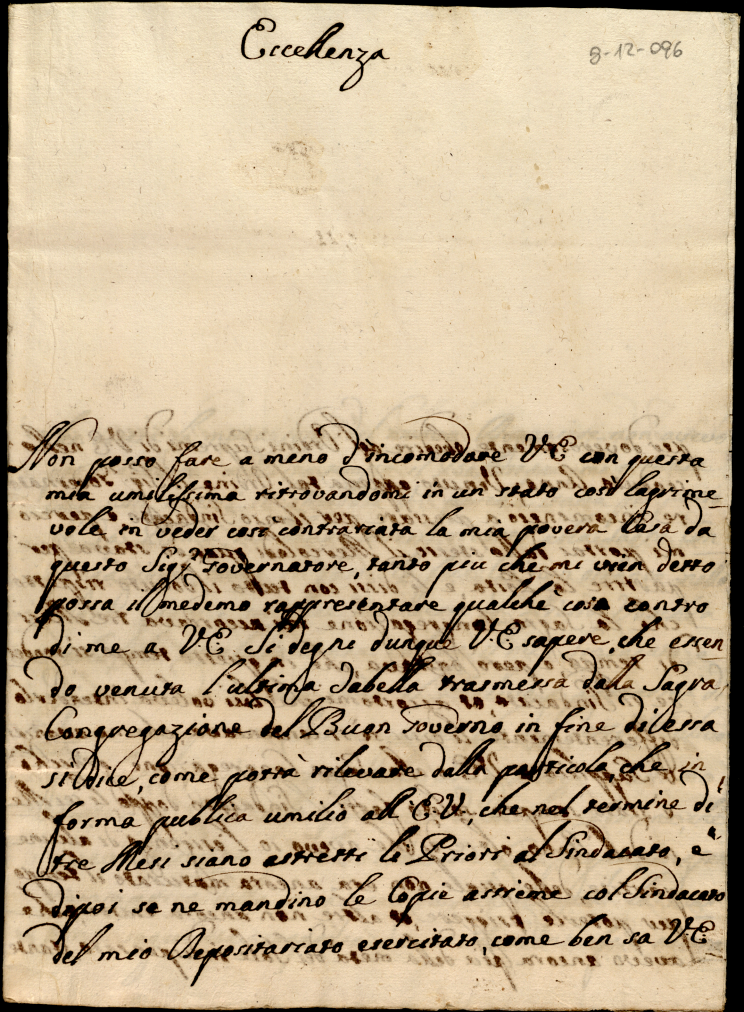 Eccellenza
8-12-096
Non posso fare a meno d'incomodare V.E. con questa
mia umilissima ritrovandomi in un stato cosi lagrime-
vole in veder cosi contrariata la mia povera Casa da
questo Sigr. Governatore, tanto più che mi vien detto
possa il medemo rappresentare qualche cosa contro
di me a V.E. Si degni dunque V.E. sapere, che essen-
do venuta l'ultima Tabella trasmessa dalla Sagra
Congregazione del Buon Governo, in fine di essa
si dice, come potrà rilevare dalla particola, che in
forma publica umilio all'E.V., che nel termine di
tre Mesi siano astretti li Priori al Sindacato, e
dipoi se ne mandino le Copie assieme col Sindacato
del mio Depositariato esercitato, come ben sa V.E.